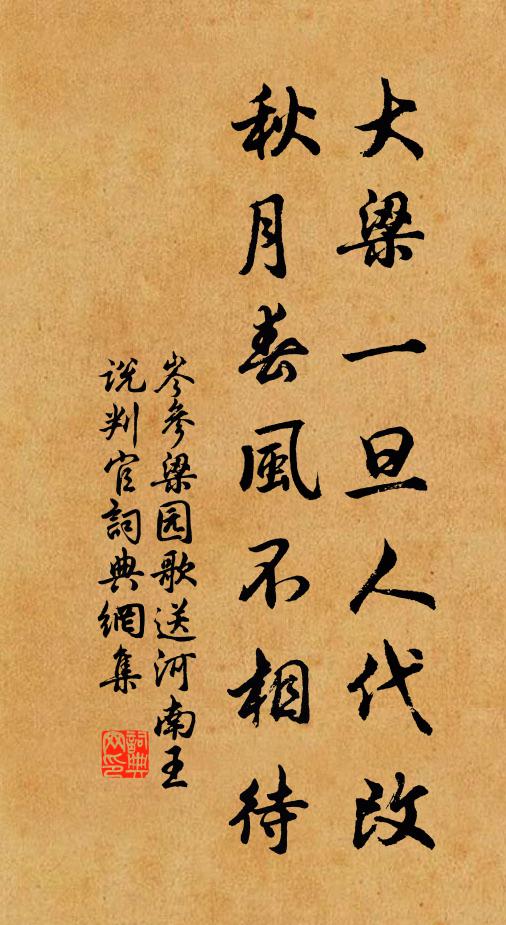 大梁一旦人代改
秋月春風不相待
岑參梁园歌送河南王
说判官詞典網集
詞典網印